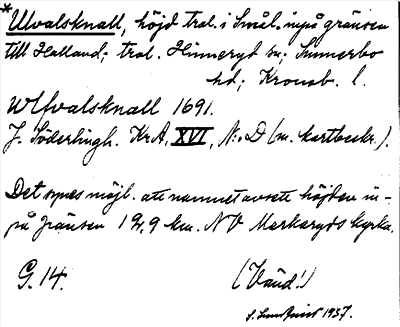 *Ulvalsknall, höjd tral. i Smål. inpå gränsen
till Halland; tral. Hinneryd sn; Sunnerbo
hd; Kronob. l.
Ulfvalsknall 1691.
J. Söderlingh. KrA, XVI, N:o D (m. kartbeskr.).
Det synes möjl. att namnet avsett höjden in-
på gränsen 12,9 km. NV Markaryds kyrka.
G. 14. (Vänd!)
S. Lundqvist 1937.